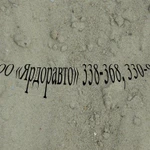 ОО «Ярдоравто» 338-368, 330-9